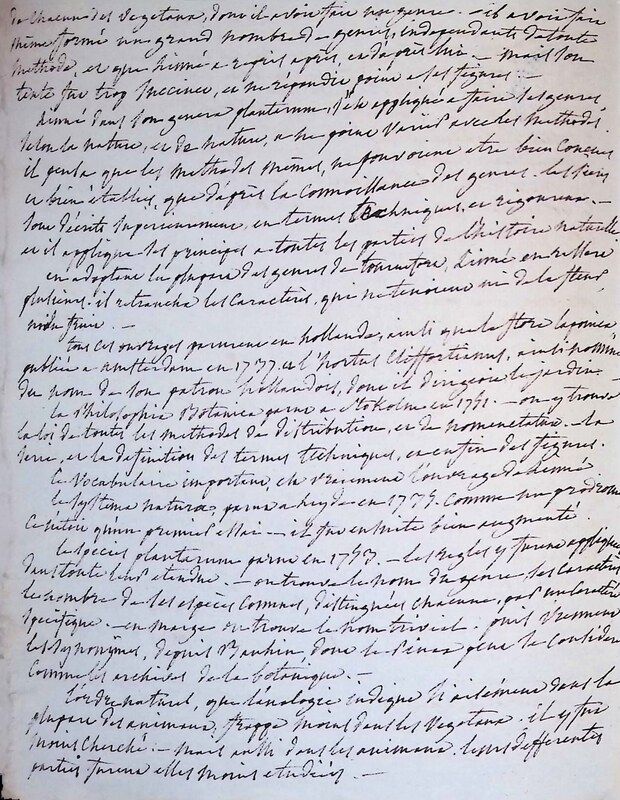 de chacun des vegetaux, dont il avoit fait un genre. – il avoit fait
même formé un grand nombre de genres, independants de toute
methode, et que Linné a repris après, et d'après lui. – mais son
texte fut trop succinct, et ne répondit point a ses figures. –
Linné dans son genera plantarum, s'est appliqué a faire ses genres
selon la nature, et de nature, a ne point varier avec les methodes
il pensa que les methodes mêmes, ne pouvoient etre bien concues
et bien établies, que d'après la connoissance des genres. les siens
sont décrits superieurement, en termes techniques, et rigoureux. –
et il applique ses principes a toutes les parties de l'histoire naturelle
en adoptant la plupart des genres de tournefort, Linné en resserre
plusieurs. il retrancha les caractères, qui ne tenoient ni de la fleur
ni du fruit. –
tous ces ouvrages parurent en hollande, ainsi que la flore laponica
publiée a amsterdam en 1737. et l'hortus Cliffortianus, ainsi nommé
du nom de son patron hollandois, dont il dirigeoit le jardin.
la Philosophia Botanica parut a Stokolm en 1751. – on y trouve
la loi de toutes les methodes de distribution, et de nomenclature. – la
serie, et la definition des termes techniques, et enfin des figures.
ce vocabulaire important est vraiment l'ouvrage de Linné
le systema naturæ, parut a leyde en 1735. comme un prodrome
ce n'etoit qu'un premier essai – il fut ensuite bien augmenté.
le species plantarum parut en 1753. – les regles y furent appliquées
dans toute leur etendue. – on trouve le nom du genre, ses caractères
le nombre de ses espèces connues, distinguées chacune, par un caractère
specifique. – en marge on trouve le nom trivial. puis viennent
les synonymes, depuis Bauhin, dont le Pinax peut se considérer
comme les archives de la botanique. –
l'ordre naturel, que l'analogie indique si aisément dans la
plupart des animaux, frappe moins dans les vegetaux. il y fut
moins cherché. – mais aussi dans les animaux, leurs differentes
parties furent elles moins etudiées. –